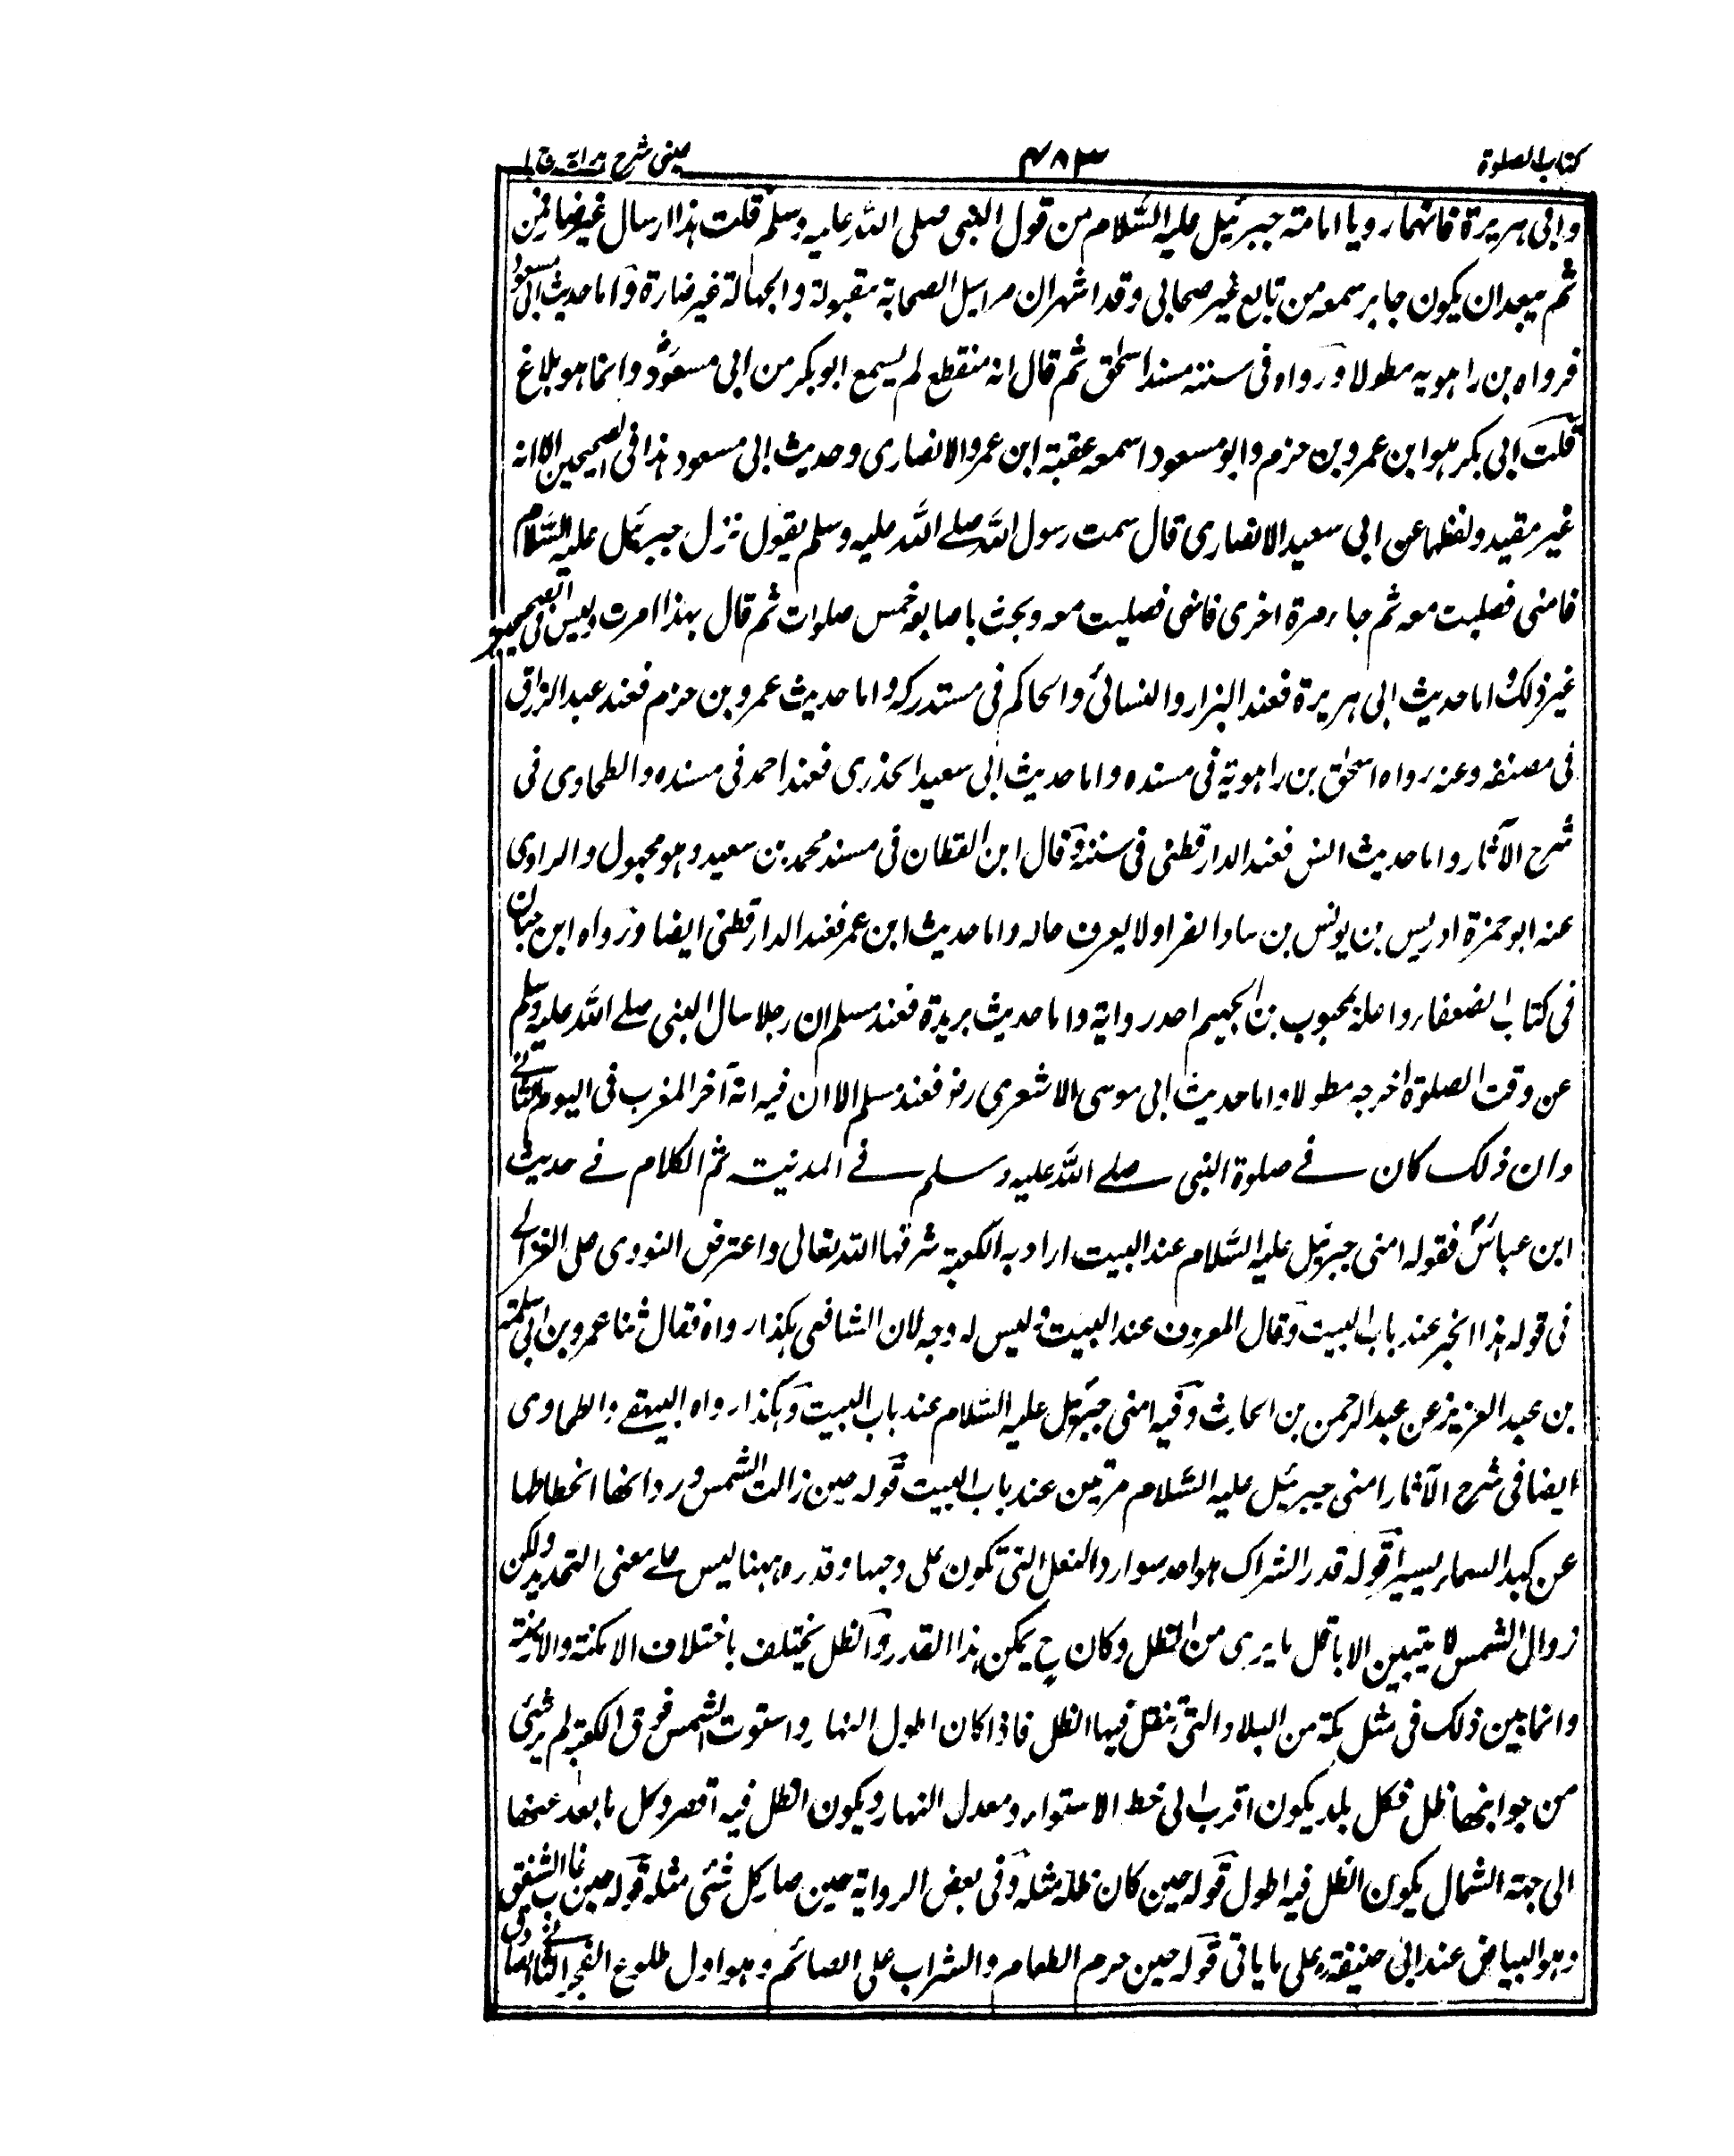 كتاب الصلوة ٤٨٣ عينى شرح هداية ج ا
وابى هريرة فانهما رويا امامة جبرئيل عليه السَّلام من قول النبى صلى الله عليه وسلم قلت هذا ارسال غير ضائر فمن
ثم يبعد ان يكون جابر سمعه من تابع غير صحابى وقد اشهر ان مراسيل الصحابة مقبولة والجهالة غير ضارة واما حديث ابى مسعود
فرواه بن راهويه مطولا ورواه فى سننه مسند اسحٰق ثم قال انه منقطع لم يسمع ابو بكر من ابى مسعود وانما هو بلاغ
قلت ابى بكر هو ابن عمرو بن حزم وابو مسعود اسمه عقبة ابن عمرو الانصارى وحديث ابى مسعود هذا فى الصحيحين الا انه
غير مقيد ولفظها عن ابى سعيد الانصارى قال سمت رسول الله صلے الله عليه وسلم يقول نزل جبرئيل عليه السَّلام
فامنى فصليت معه ثم جاء مرة اخرى فامنى فصليت معه ويجث باصابعه خمس صلوات ثم قال بهذا امرت وليس فى الصحيحين
غير ذلك واما حديث ابى هريرة فعند البزار والنسائى والحاكم فى مستدركه واما حديث عمرو بن حزم فعند عبد الرزاق
فى مصنفه وعنه رواه اسحٰق بن راهوية فى مسنده واما حديث ابى سعيد الخذرى فعند احمد فى مسنده والطحاوى فى
شرح الآثار واما حديث انس فعند الدارقطنى فى سننه وقال ابن القطان فى مسند محمد بن سعيد وهو مجهول والراوى
عنه ابو حمزة ادريس بن يونس بن سادا الفراولا يعرف حاله واما حديث ابن عمر فعند الدارقطنى ايضا ورواه ابن حبان
فى كتاب الضعفاء واعله بمحبوب بن الجهيم احد رواية واما حديث بريدة فعند مسلم ان رجلا سال النبى صلے الله عليه وسلم
عن وقت الصلوة اخرجه مطولا واما حديث ابى موسى الاشعرى رضـ فعند مسلم الا ان فيه انه آخر المغرب فى اليوم الثانے
وان ذلك كان فے صلوة النبى صلے الله عليه وسلم فے المدنيت ثم الكلام فے حديث
ابن عباس فقوله امنى جبرئيل عليه السَّلام عند البيت اراد به الكعبة شرفها الله تعالى واعترض النووى على الغزالے
فى قوله هذا الخبر عند باب البيت وقال المعروف عند البيت وليس له وجه لان الشافعى هكذا رواه فقال ثنا عمرو بن ابى سلمة
بن عبد العزيز عن عبد الرحمن بن الحارث وفيه امنى جبرئيل عليه السَّلام عند باب البيت وهكذا رواه البيهقے والطحاوى
ايضا فى شرح الآثار امنى جبرئيل عليه السَّلام مرتين عند باب البيت قوله حين زالت الشمس ورد انخا انحطاطها
عن كبد السماء يسيرا قوله قدر الشراك هو احد سوارد النعل التى تكون على وجهها وقدره ههنا ليس علے معنى التحديد ولكن
زوال الشمس لا يتبين الا باقل ما يرى من الظل وكان ح يمكن هذا القدر والظل يختلف باختلاف الامكنة والازمنة
وانما يبين ذلك فى مثل مكة من البلاد التى تنقل فيها الظل فاذا كان اطول النهار واستوت الشمس فوق الكعبة لم ير شئى
من جوانبها ظل فكل بلد يكون اقرب الى خط الاستواء ومعدل النهار ويكون الظل فيه اقصر وكل ما بعد عنها
الى جهة الشمال يكون الظل فيه اطول قوله حين كان ظله مثله وفى بعض الرواية حين صار كل شئى مثله قوله حين غاب الشفق
وهو البياض عند ابى حنيفة رح على ما ياتى قوله حين حرم الطعام والشراب على الصائم وهو اول طلوع الفجر الثانے الصادق